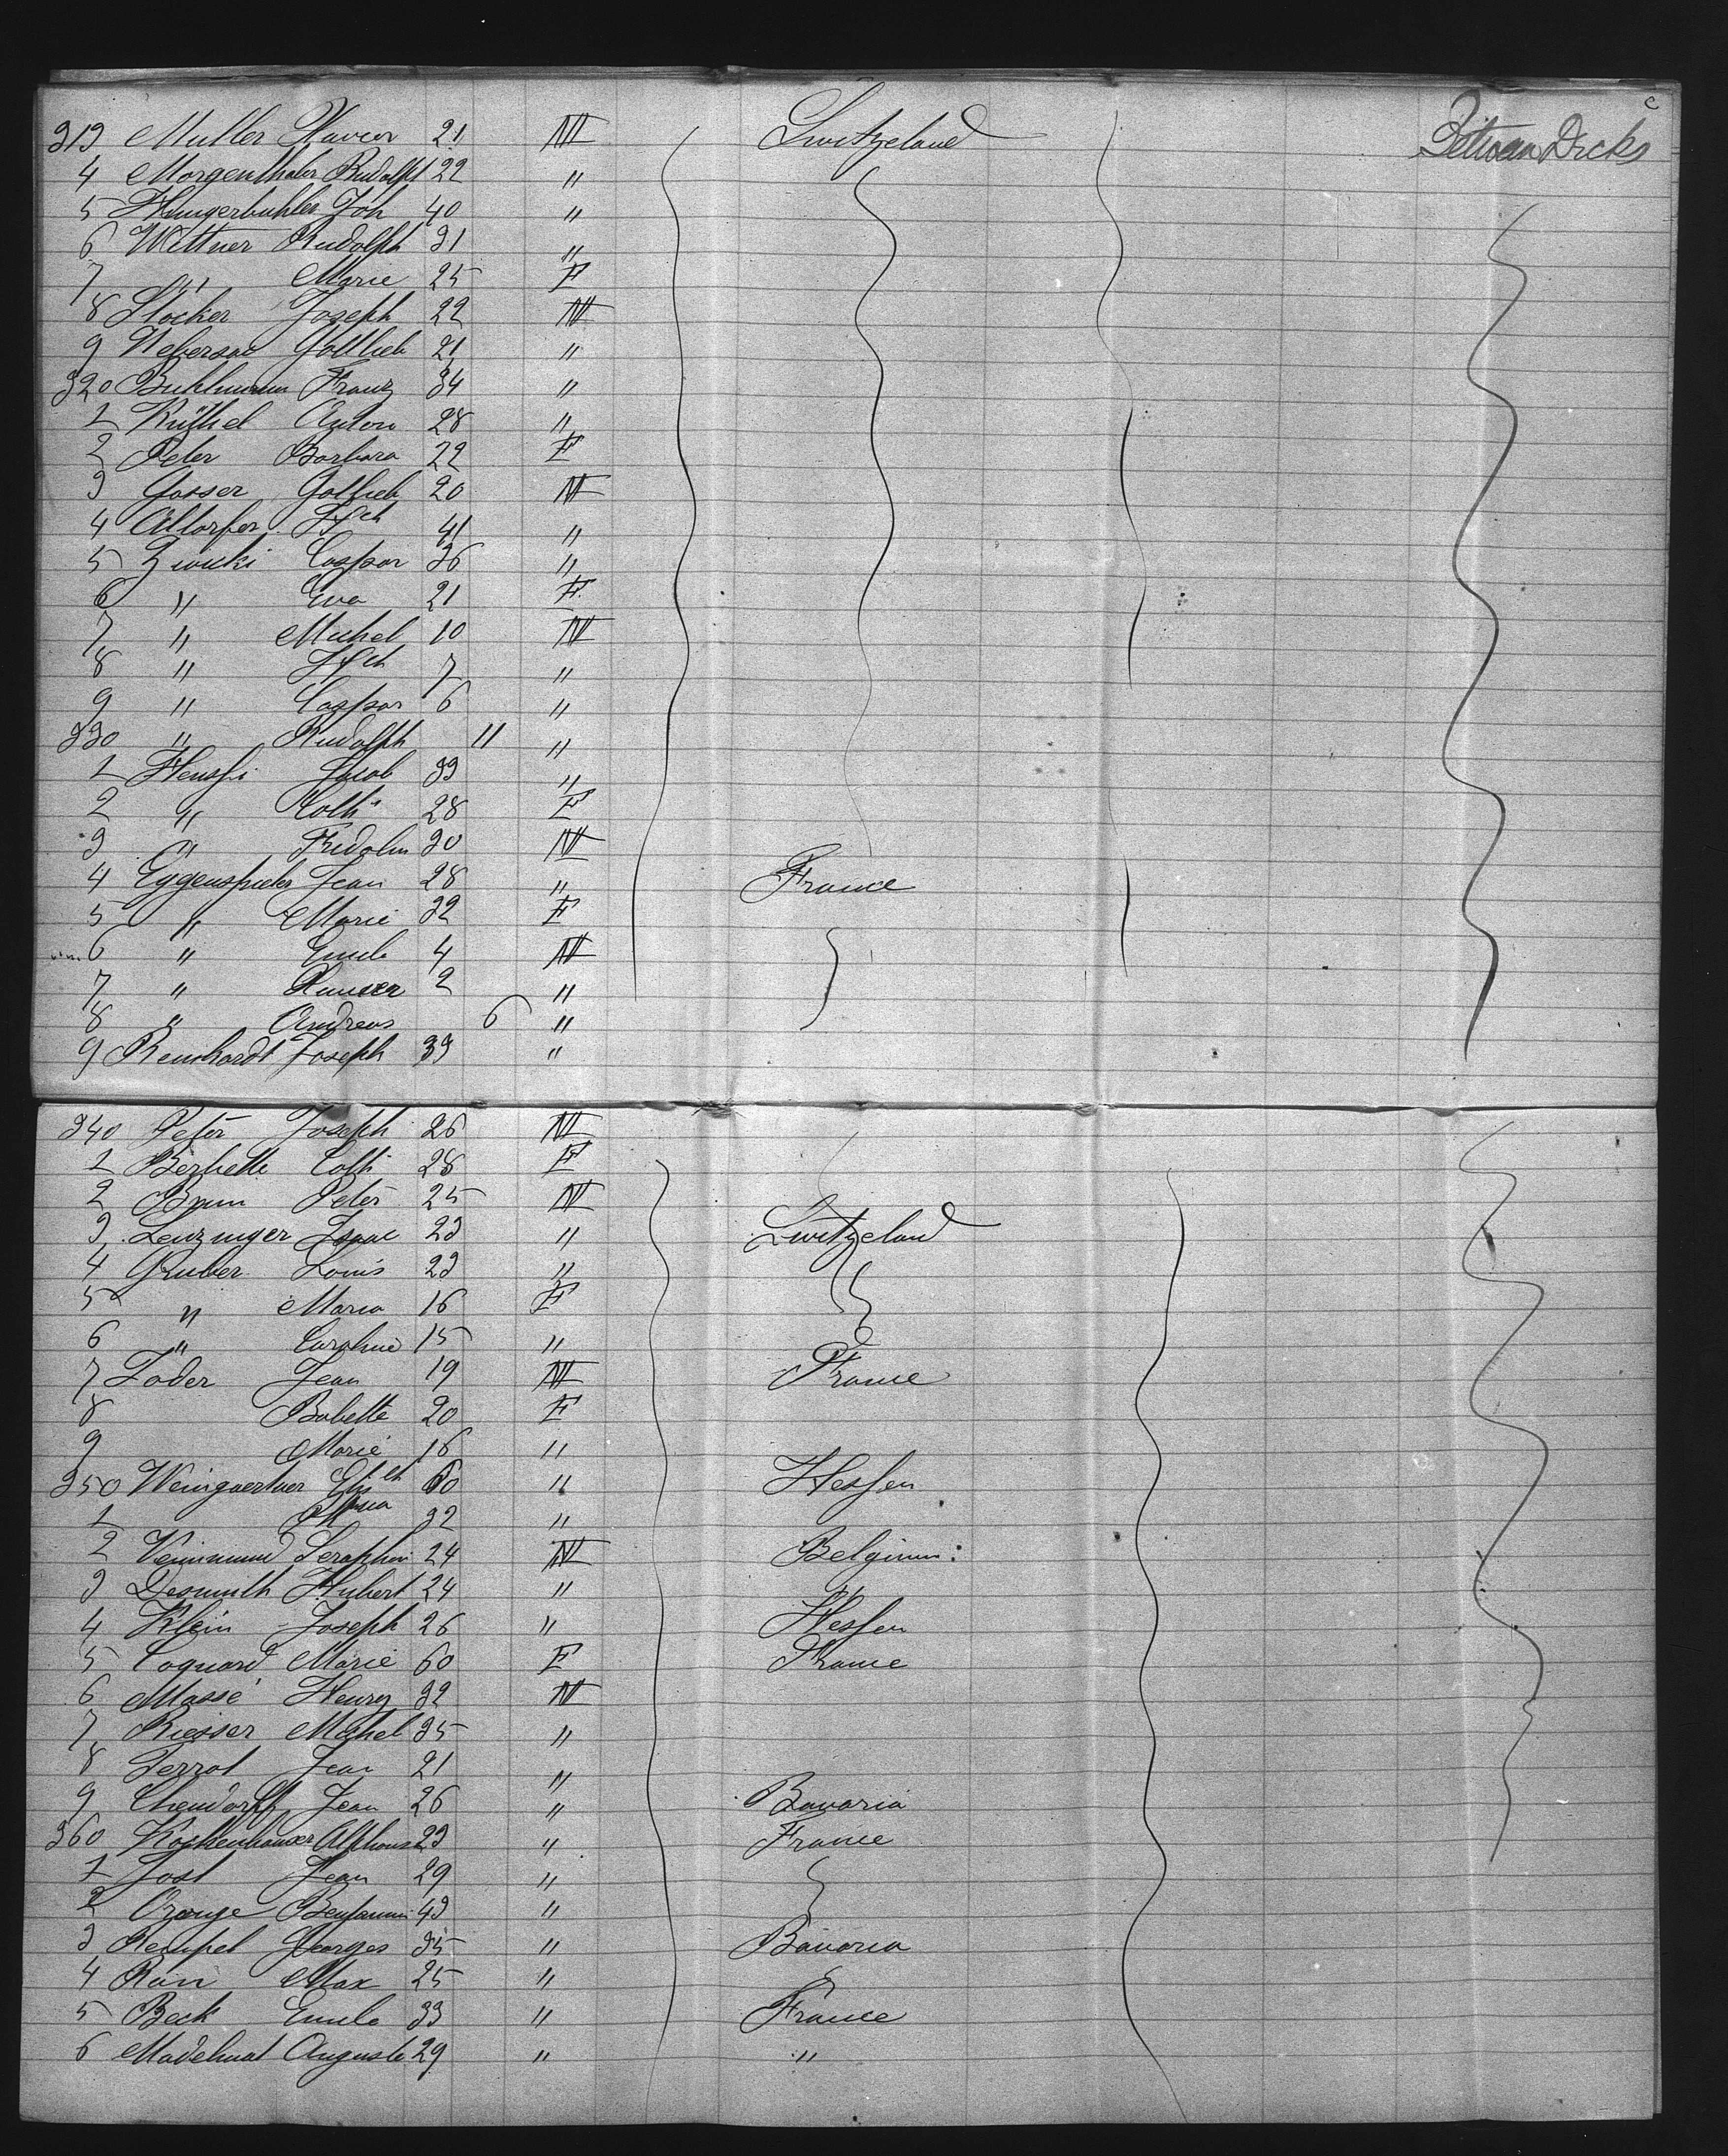 313 Muller Xavier 21 M Switzeland Between Decks
4 Morgenthaler Rudolph 22 "
5 Hungerbuhler Joh 40 "
6 Wittner Rudolph 31 "
7 " Marie 25 F
8 Stocker Joseph 22 M
9 Uebersax Gottlieb 21 "
320 Buhlmann Franz 34 "
1 Küttel Anton 28 "
2 Peter Barbara 22 F
3 Gasser Gottlieb 20 M
4 Altorfer 41 "
5 Zwicki Caspar 36 "
6 " Eva 21 F
7 " Michel 10 M
8 " 7 "
9 " Caspar 6 "
330 " Rudolph 11 "
1 Jacob 33 "
2 " Cath 28 F
3 " Fridolin 30 M
4 Eggenspieler Jean 28 " France
5 " Marie 32 F
6 " Emile 4 M
7 " 2 "
8 " Andreas 6 "
9 Reinhardt Joseph 33 "
340 Peter Joseph 26 M
1 Cath 28 F
2 Brun Peter 25 M
3 Lenzinger Isaac 23 " Switzeland
4 Gruber Louis 23 "
5 " Maria 16 F
6 " Caroline 15 "
7 Loder Jean 19 M France
8 Babette 20 F
9 Marie 16 "
350 Weingaertner 60 " Hessen
1 32 "
2 Seraphin 24 M Belgium:
3 Desmith Hubert 24 "
4 Klein Joseph 26 " Hessen
5 Coquard Marie 60 F France
6 Massé Henry 32 M
7 Riesser Michel 35 "
8 Perrot Jean 21 "
9 Jean 26 " Bavaria
360 Alphons 23 " France
1 Jost Jean 29 "
2 Orange Benjamin 43 "
3 Kempel Georges 35 " Bavaria
4 Max 25 "
5 Beck Emile 33 " France
6 Auguste 29 " "